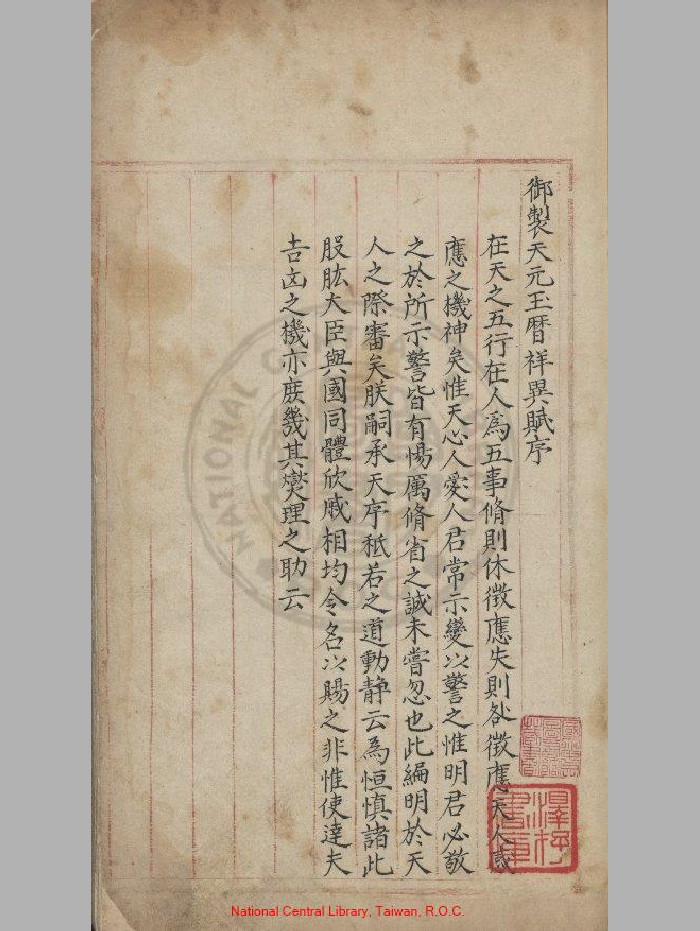 御製天元玉曆祥異賦序
在天之五行在人爲五事脩則休徵應失則咎徵應天人感
應之機神矣惟天心人愛人君常示變以警之惟明君必敬
之於所示警皆有惕厲脩省之誠未嘗忽也此編明於天
人之際審矣朕嗣承天序秪若之道動静云為恒慎諸此
股肱大臣與國同體欣戚相均令名以賜之非惟使達夫
吉凶之機亦庶幾其爕理之助云
National Central Library, Taiwan, R.O.C.